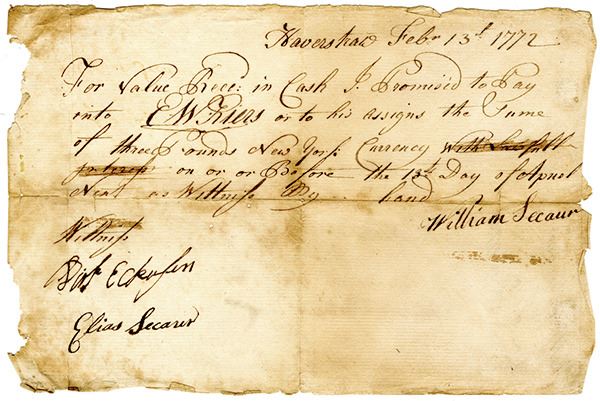 Haverstraw Febr 13th 1772
For Value Rece: in Cash I Promised to Pay
unto E W Kiers or to his assigns the Sume
of three Pounds New York Currency With
on or or Before the 13th Day of Apriel
Next as Wittniss My hand
William Secaur
Wittniss
Elias Secaur